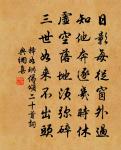 日影每從窗外過
知他奔逐幾時休
虛空落地須彌碎
三世如來不出頭
釋如珙偈頌二十首詞
典網集